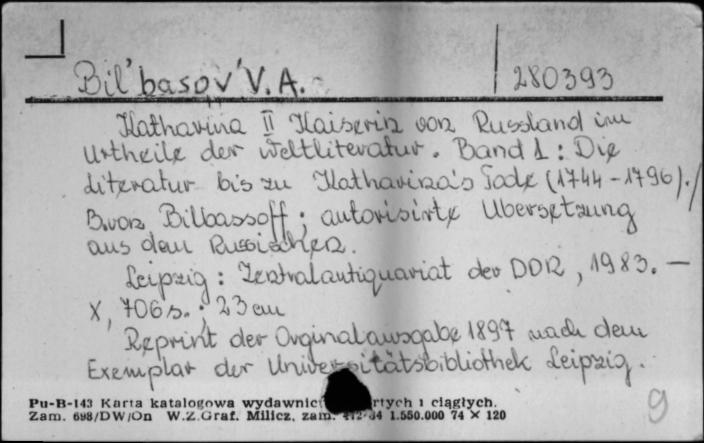 Bil'basov V.A. 280393
Katharina II Kaiserin von Russland im
Urtheile der Weltliteratur. Band 1: Die
Literatur bis zu Katharina's Tode (1744-1796)./
B.von Bilbassoff; autorisirte Ubersetzung
aus dem Russischen.
Leipzig: Zentralantiquariat der DDR, 1983. —
X, 706 s.; 23 cm
Reprint der Orginalausgabe 1897 nach dem
Exemplar der Universitätsbibliothek Leipzig.
Pu-B-143 Karta katalogowa wydawnict rtych i ciągłych.
Zam. 698/DW/On W.Z.Graf. Milicz, zam. 84 1.550.000 74 × 120
9